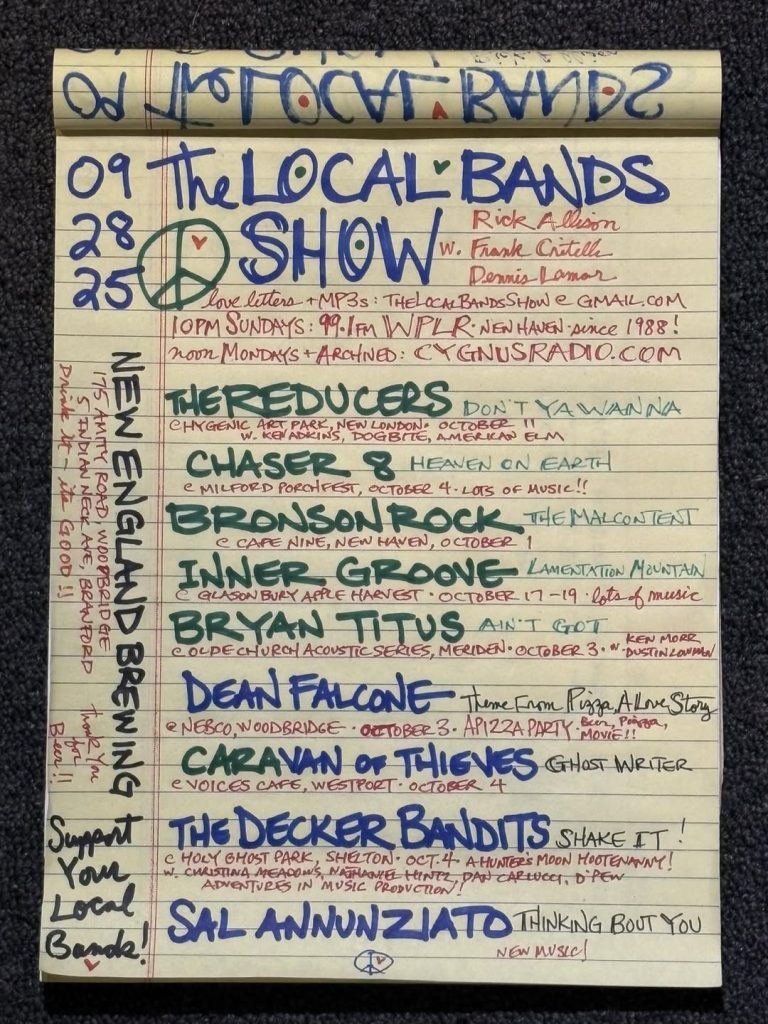 The LOCAL BANDS
09 The LOCAL BANDS
28 SHOW w. Rick Allison
Frank Critelli
25 Dennis Lamar
love letters + MP3s: THELOCALBANDSSHOW @ GMAIL.COM
10PM SUNDAYS: 99.1FM WPLR · NEW HAVEN · since 1988!
noon MONDAYS + ARCHIVED: CYGNUSRADIO.COM
THE REDUCERS DON'T YA WANNA
@ HYGENIC ART PARK, NEW LONDON · OCTOBER 11
W. KEN ADKINS, DOGBITE, AMERICAN ELM
CHASER 8 HEAVEN ON EARTH
@ MILFORD PORCHFEST, OCTOBER 4 · LOTS OF MUSIC!!
BRONSON ROCK THE MALCONTENT
@ CAFE NINE, NEW HAVEN, OCTOBER 1
INNER GROOVE LAMENTATION MOUNTAIN
@ GLASONBURY APPLE HARVEST · OCTOBER 17-19 · lots of music
BRYAN TITUS AIN'T GOT
@ OLDE CHURCH ACOUSTIC SERIES, MERIDEN · OCTOBER 3 · w. KEN MORR
DUSTIN LOWMAN
DEAN FALCONE Theme From Pizza, A Love Story
@ NEBCO, WOODBRIDGE · OCTOBER 3 · APIZZA PARTY Beer, Pizza,
MOVIE!!
CARAVAN OF THIEVES GHOST WRITER
@ VOICES CAFE, WESTPORT · OCTOBER 4
THE DECKER BANDITS SHAKE IT!
@ HOLY GHOST PARK, SHELTON · OCT. 4 · A HUNTER'S MOON HOOTENANNY!
W. CHRISTINA MEADOWS, NATHANIEL HINTZ, DAN CARLUCCI, D'PEW
ADVENTURES IN MUSIC PRODUCTION!
SAL ANNUNZIATO THINKING BOUT YOU
NEW MUSIC!
NEW ENGLAND BREWING
175 AMITY ROAD, WOODBRIDGE
5 INDIAN NECK AVE, BRANFORD
Drink It - its GOOD!!
Thank You
for
Beer!!
Support
Your
Local
Bands!